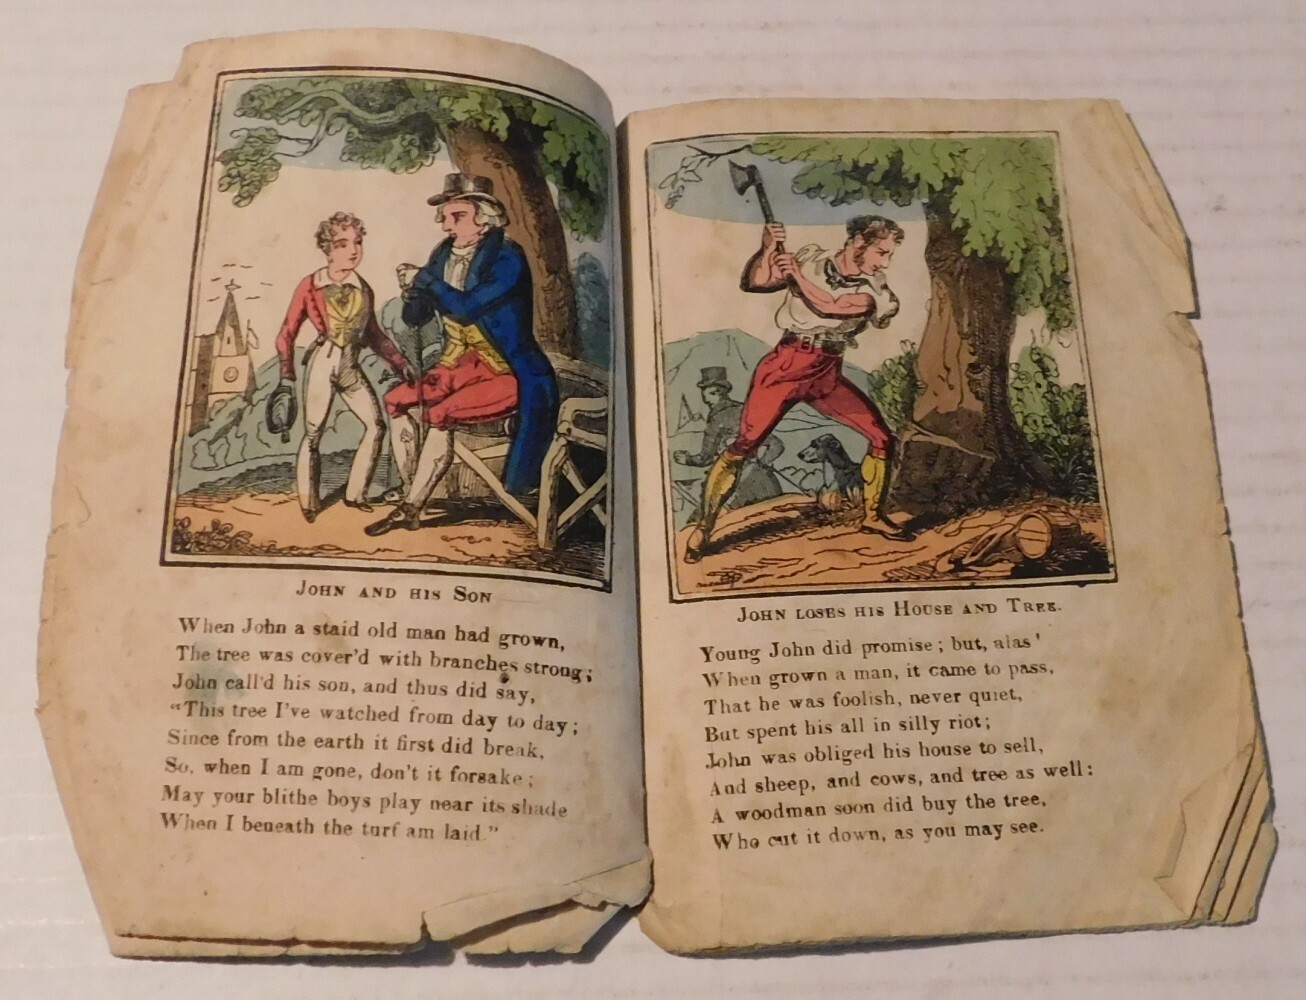 JOHN AND HIS SON
When John a staid old man had grown,
The tree was cover'd with branches strong;
John call'd his son, and thus did say,
"This tree I've watched from day to day;
Since from the earth it first did break,
So, when I am gone, don't it forsake;
May your blithe boys play near its shade
When I beneath the turf am laid."
JOHN LOSES HIS HOUSE AND TREE.
Young John did promise; but, alas'
When grown a man, it came to pass,
That he was foolish, never quiet,
But spent his all in silly riot;
John was obliged his house to sell,
And sheep, and cows, and tree as well:
A woodman soon did buy the tree,
Who cut it down, as you may see.